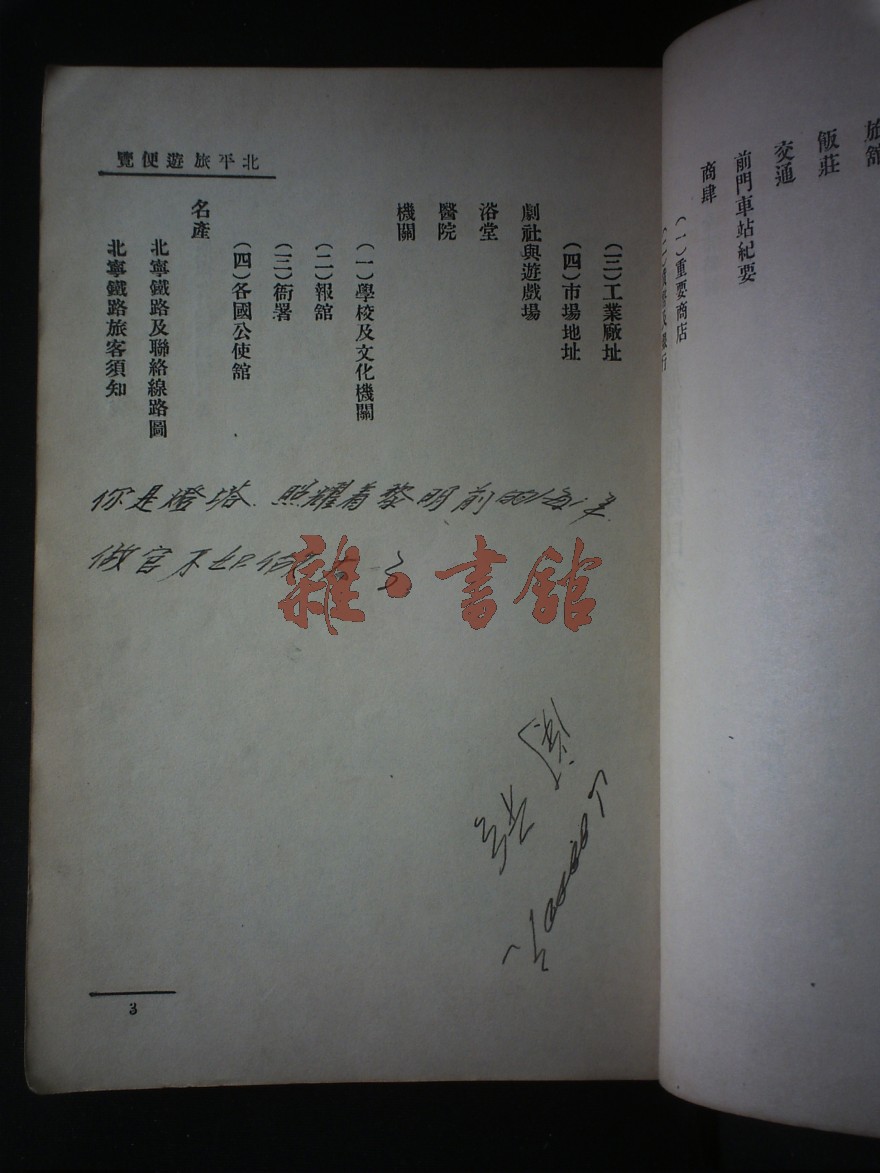 旅館
飯莊
交通
前門車站紀要
商肆
(一)重要商店
北平旅遊便覽
(三)工業廠址
(四)市場地址
劇社與遊戲場
浴堂
醫院
機關
(一)學校及文化機關
(二)報館
(三)衙署
(四)各國公使館
名產
北寧鐵路及聯絡線路圖
北寧鐵路旅客須知
你是燈塔 照耀着黎明前的海
做官不如做
雜·書館
3